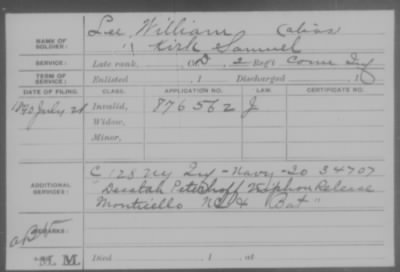 NAME OF SOLDIER: Lee, William (alias
" Kirk Samuel
SERVICE: Late rank, Co. D, 2 Reg't Conn Inf
TERM OF SERVICE: Enlisted , 1 Discharged , 1
DATE OF FILING. CLASS. APPLICATION NO. LAW. CERTIFICATE NO.
1890 July 28 Invalid, 876562 J
Widow,
Minor,
ADDITIONAL SERVICES: C 128 NY Inf - Navy - 20 34707
Peterhoff Release
Monticello NC & Bat"
REMARKS:
M. Died , 1 , at